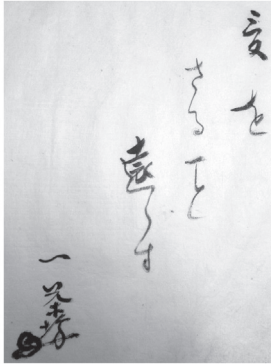 爰を
さること
遠らす
一茶坊